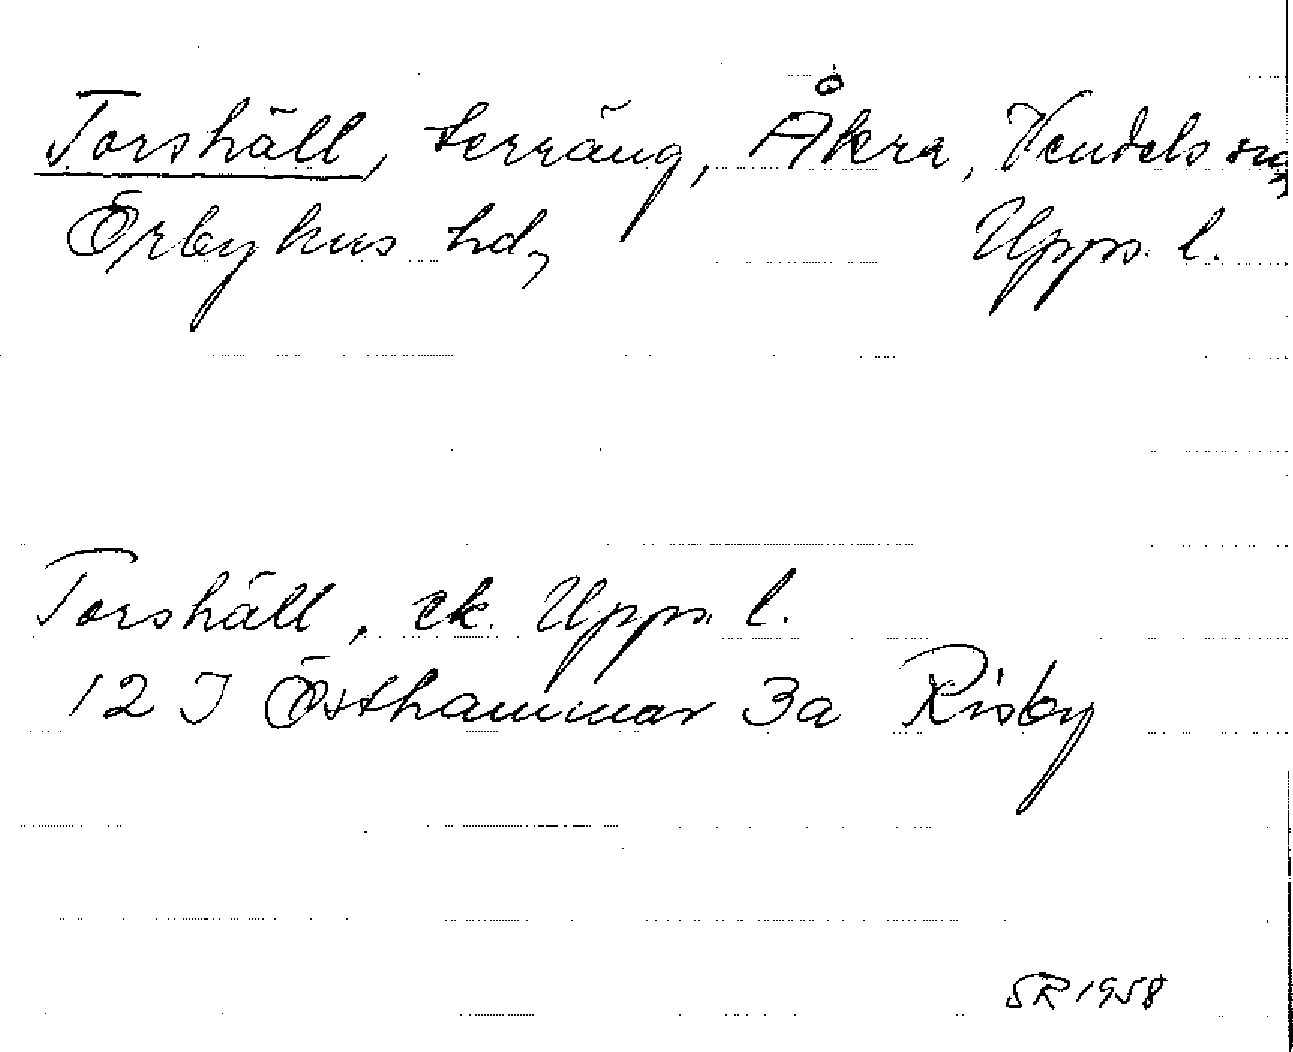 Torshäll, terräng, Åkra, Vendels sn,
Örbyhus hd, Upps. l.
Torshäll, ek. Upps. l.
12 I Östhammar 3a Risby
SR 1958